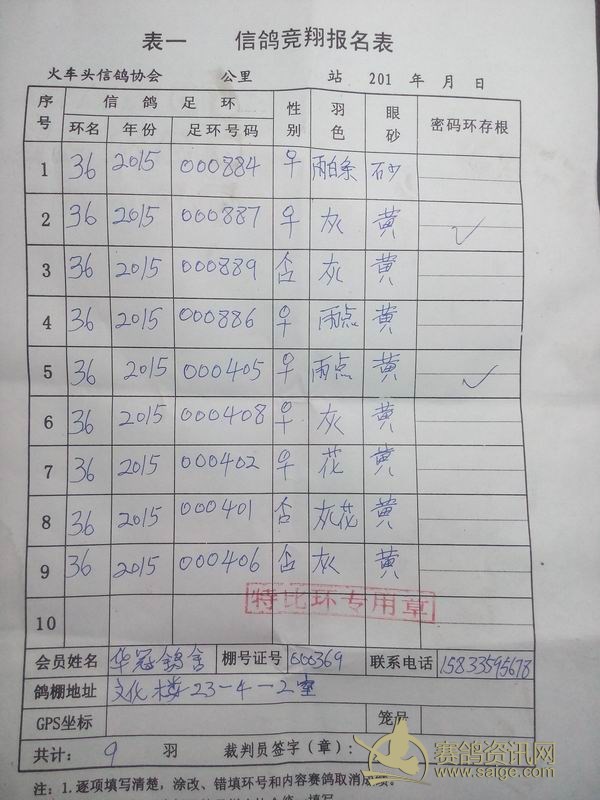 表一 信鸽竞翔报名表
火车头信鸽协会 公里 站 201 年 月 日
序号 信鸽足环 性别 羽色 眼砂 密码环存根
环名 年份 足环号码
1 36 2015 000884 ♀ 雨白条 砂
2 36 2015 000887 ♀ 灰 黄 ✓
3 36 2015 000889 否 灰 黄
4 36 2015 000886 ♀ 雨点 黄
5 36 2015 000405 ♀ 雨点 黄 ✓
6 36 2015 000408 ♀ 灰 黄
7 36 2015 000402 ♀ 花 黄
8 36 2015 000401 否 灰花 黄
9 36 2015 000406 否 灰 黄
特比环专用章
10
会员姓名 华冠鸽舍 棚号证号 000369 联系电话 15833595678
鸽棚地址 文化楼23-4-2室
GPS坐标 笼号
共计: 9 羽 裁判员签字(章):
赛鸽资讯网
www.saige.com
注:1.逐项填写清楚,涂改、错填环号和内容赛鸽取消成绩。